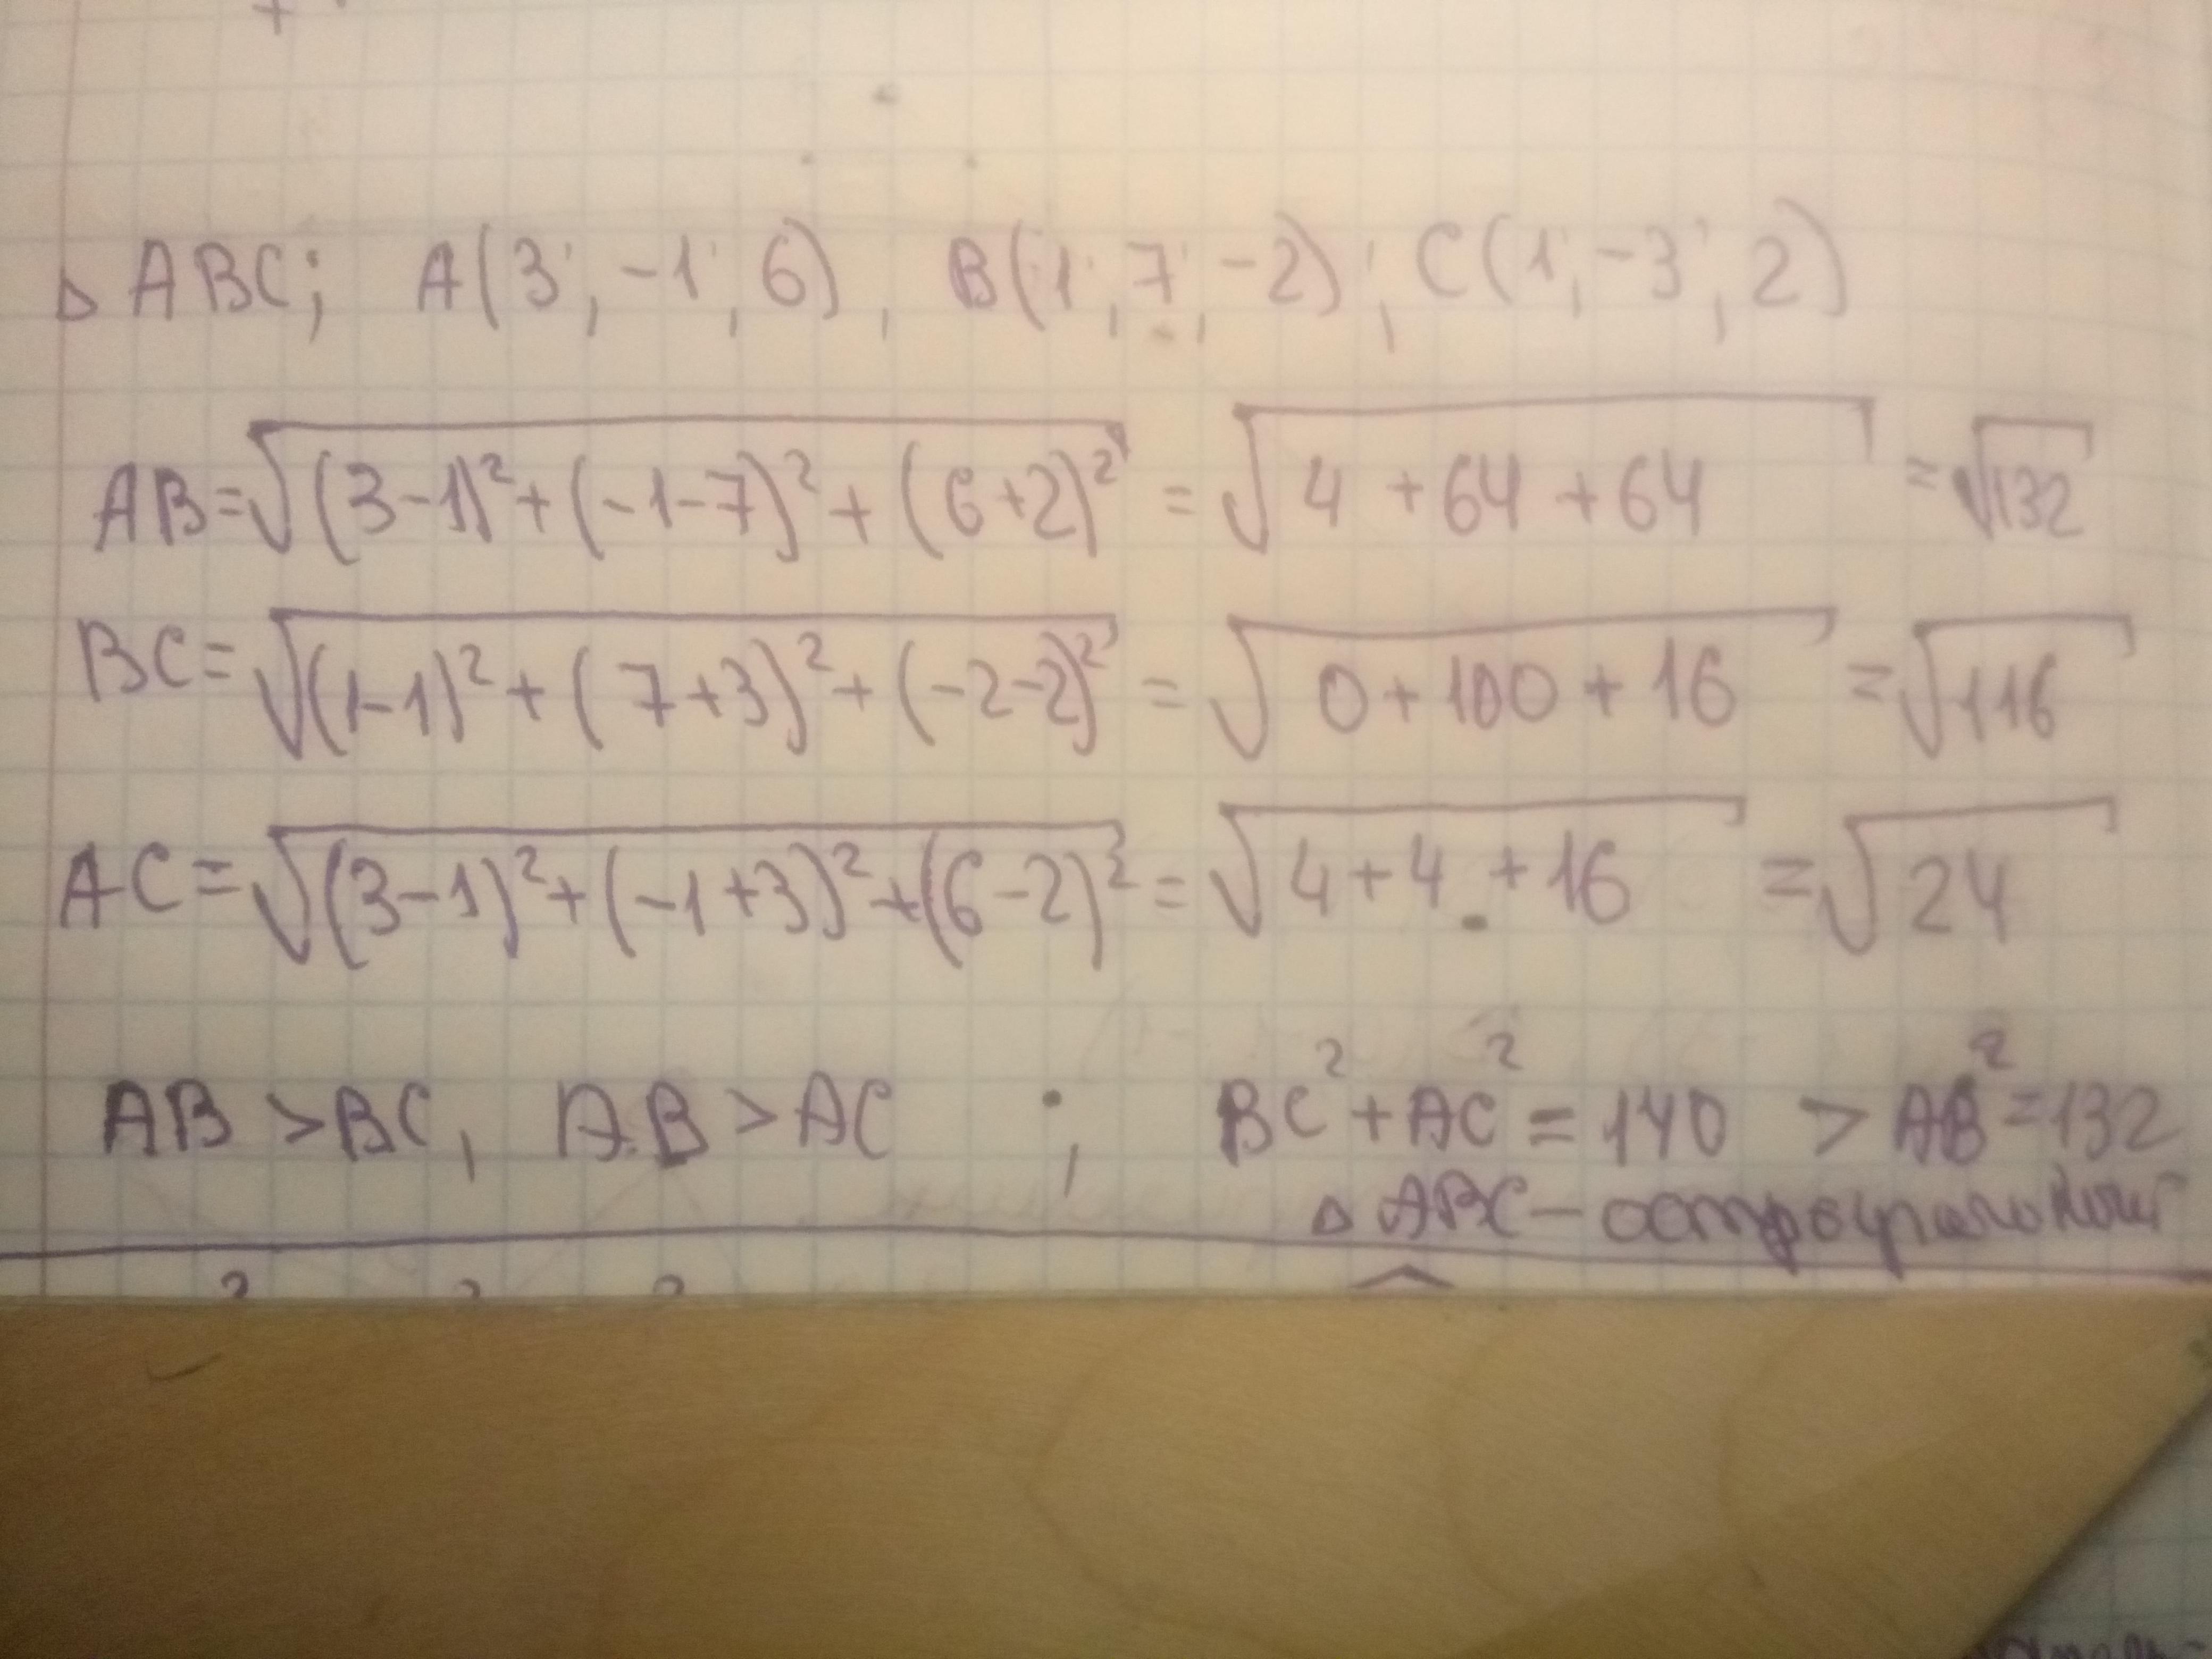 △ ABC; A(3; -1; 6), B(1; 7; -2); C(1; -3; 2)
AB=√(3-1)²+(-1-7)²+(6+2)² = √4+64+64 = √132
BC= √(1-1)²+(7+3)²+(-2-2)² = √0+100+16 = √116
AC= √(3-1)²+(-1+3)²+(6-2)² = √4+4+16 = √24
AB >BC, AB >AC ; BC²+AC² = 140 > AB²=132
△ ABC - остроугольный